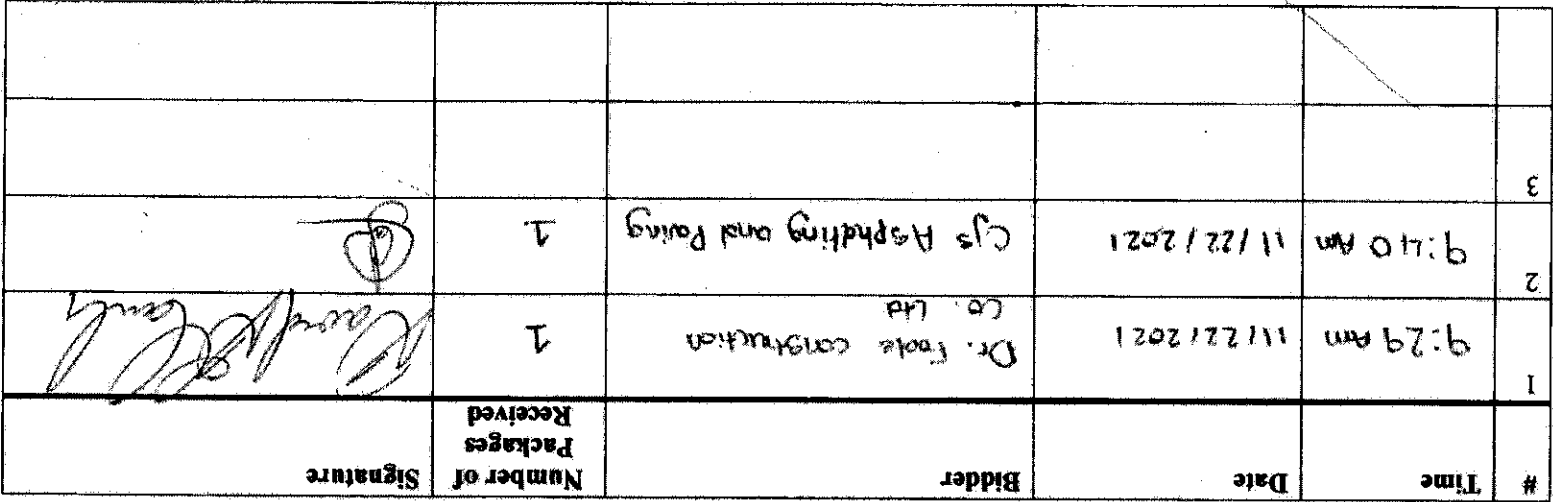 # Time Date Bidder Number of Packages Received Signature
1 9:29 Am 11/22/2021 Dr. Foote construction Co. Ltd 1
2 9:40 Am 11/22/2021 CJs Asphalting and Paving 1
3